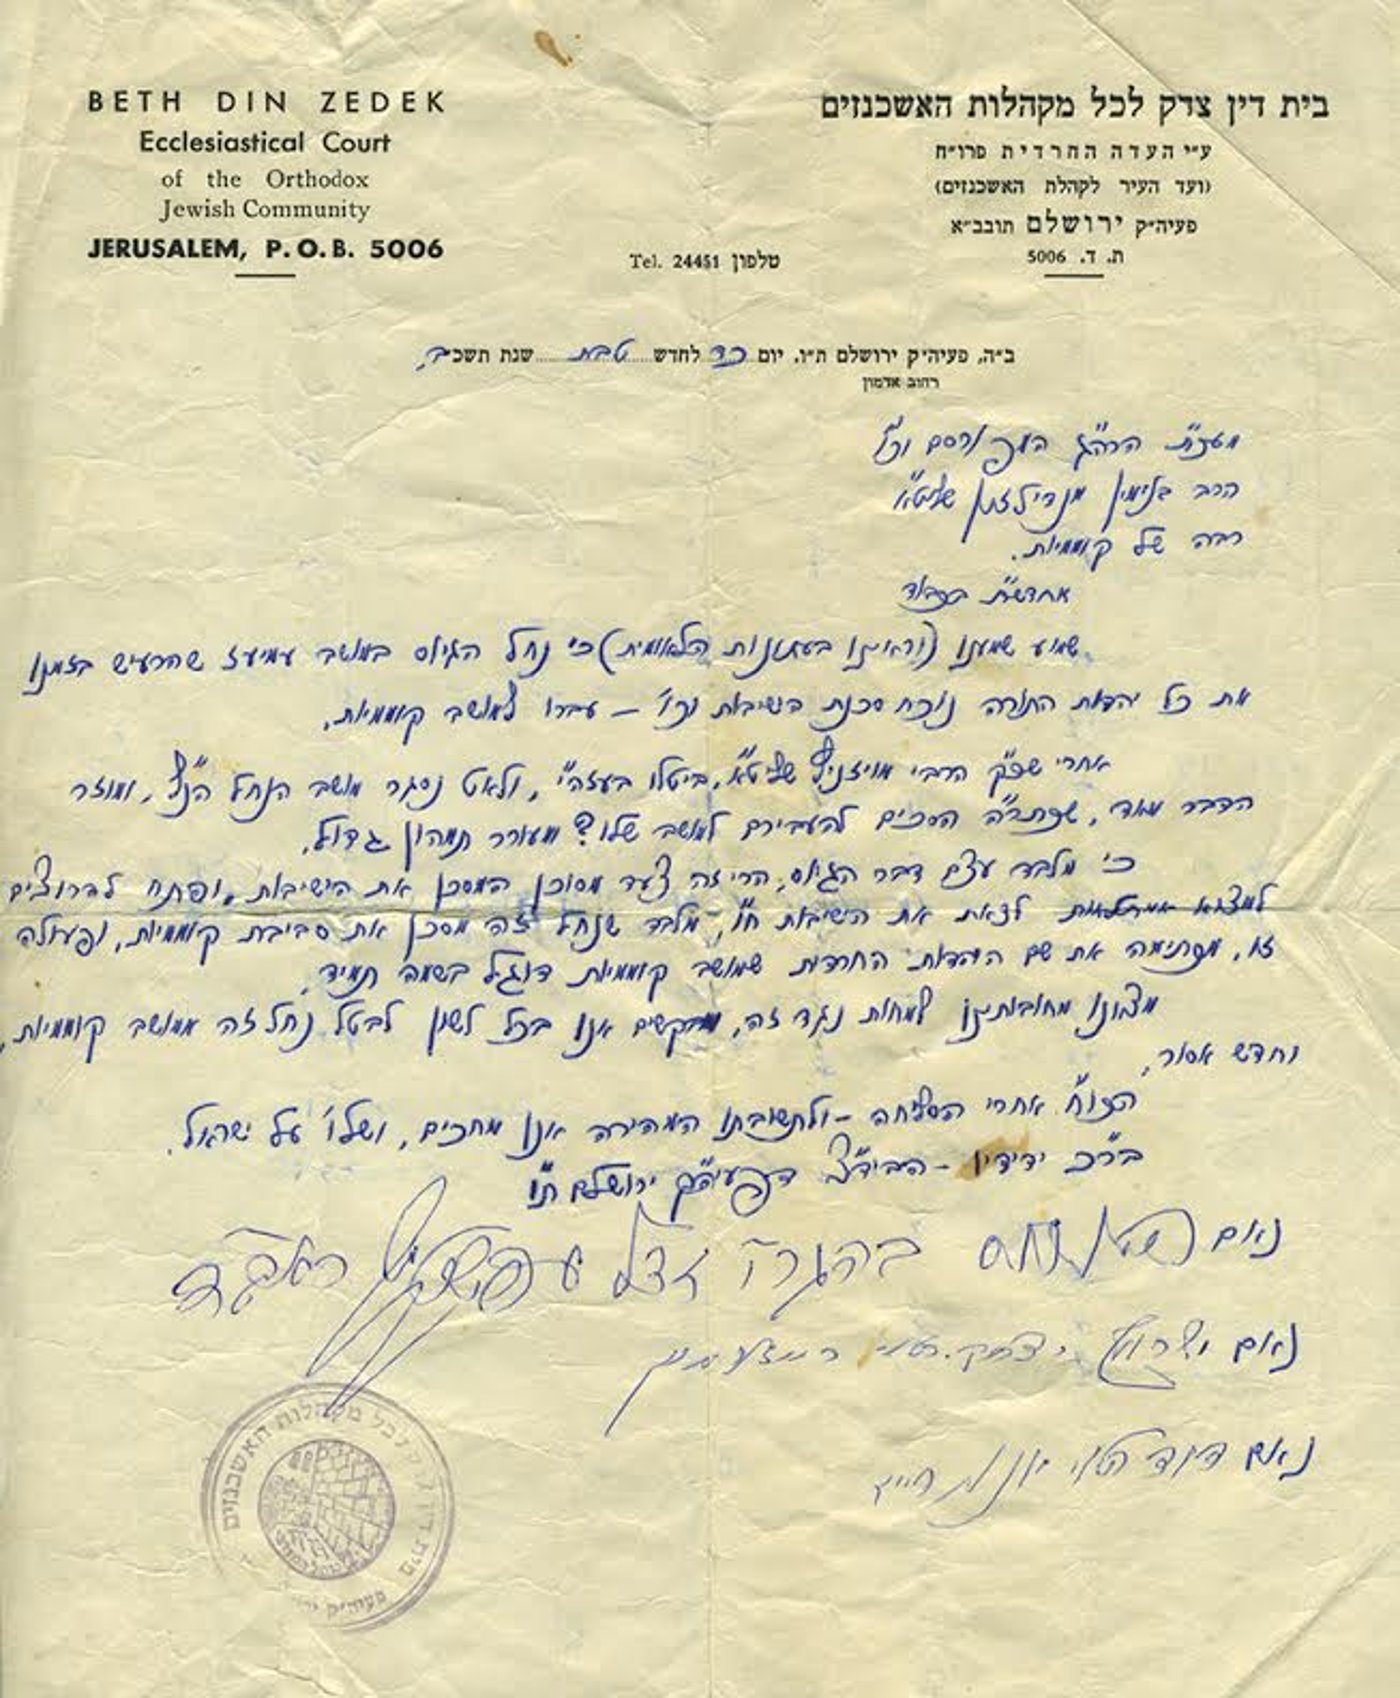 BETH DIN ZEDEK
Ecclesiastical Court
of the Orthodox
Jewish Community
JERUSALEM, P.O.B. 5006
בית דין צדק לכל מקהלות האשכנזים
ע״י העדה החרדית פרו״ח
(ועד העיר לקהלת האשכנזים)
פעיה״ק ירושלם תובב״א
ת. ד. 5006
Tel. 24451 טלפון
ב״ה, פעיה״ק ירושלם ת״ו. יום כד לחדש טבת שנת תשכ״ב,
רחוב אדמון
מע״כ הרה״ג המפורסם וכו׳
הרב בנימין מנדילזון שליט״א
רבה של קוממיות.
אחדשה״ט בכבוד
שמוע שמענו (וראינו בעתונות הלאומית) כי נחל הגיוס במושב עמיעז שהרעיש בזמנו
את כל יהדות התורה נוכח סכנת הישיבות וכו׳ – עברו למושב קוממיות,
אחרי שכ״ק הרבי מויזניץ שליט״א, ביטלו בעזה״י, ולאט נסגר מושב הנחל הנ״ל, ומוזר
הדבר מאד, שכתר״ה הסכים להעבירם למושב שלו? מעורר תמהון גדול,
כי מלבד עצם דבר הגיוס, הרי זה צעד מסוכן המסכן את הישיבות, ופתח לרוצים
לצאת את הישיבות ח״ו, מלבד שנחל זה מסכן את סביבת קוממיות, ופעולה
זו, מכתימה את שם היהדות החרדית שמושב קוממיות דוגל בשמה תמיד,
מצאנו מחובותינו למחות נגד זה, ומבקשים אנו בכל לשון לבטל נחל זה ממושב קוממיות,
וחדש אסור,
הכו״ח אחרי הסליחה – ולתשובתו המהירה אנו מחכים, ושלו׳ על ישראל.
ברכ ידידיו – הביד״צ דפעיה״ק ירושלם ת״ו
נאום פינחס בהגר״י זצ״ל עפשטיין ראב״ד
נאום ישראל יצחק הלוי רייזמן
נאם דוד הלוי יונגרייז
בית דין צדק לכל מקהלות האשכנזים